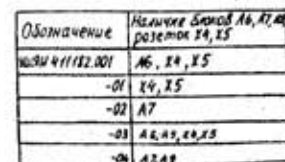 Обозначение
Наличие блоков А6, А7, А9
розеток X4, X5
411182.001
А6, X4, X5
-01
X4, X5
-02
А7
-03
А6, А9, X4, X5
-04
А7, А9